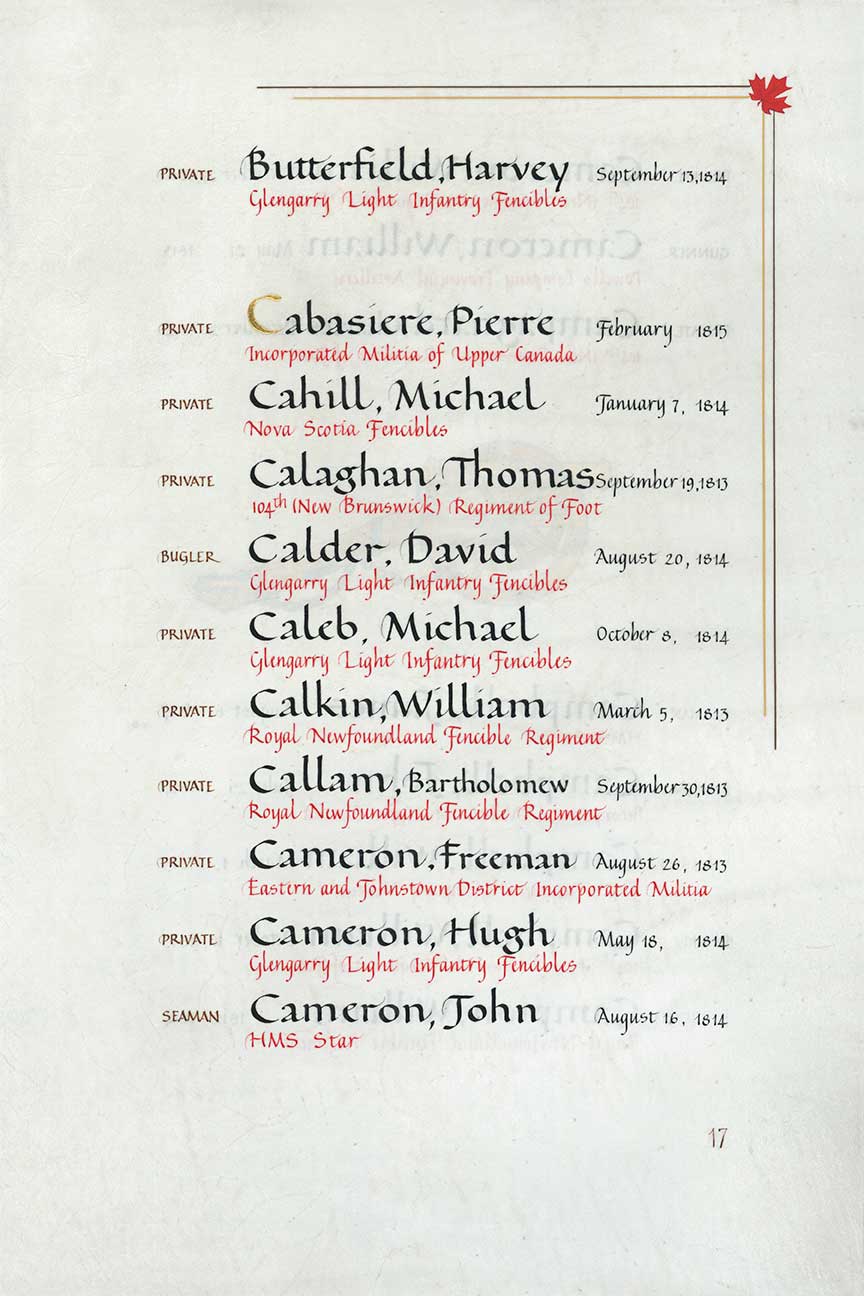 PRIVATE Butterfield, Harvey September 13, 1814
Glengarry Light Infantry Fencibles
PRIVATE Cabasiere, Pierre February 1815
Incorporated Militia of Upper Canada
PRIVATE Cahill, Michael January 7, 1814
Nova Scotia Fencibles
PRIVATE Calaghan, Thomas September 19, 1813
104th (New Brunswick) Regiment of Foot
BUGLER Calder, David August 20, 1814
Glengarry Light Infantry Fencibles
PRIVATE Caleb, Michael October 8, 1814
Glengarry Light Infantry Fencibles
PRIVATE Calkin, William March 5, 1813
Royal Newfoundland Fencible Regiment
PRIVATE Callam, Bartholomew September 30, 1813
Royal Newfoundland Fencible Regiment
PRIVATE Cameron, Freeman August 26, 1813
Eastern and Johnstown District Incorporated Militia
PRIVATE Cameron, Hugh May 18, 1814
Glengarry Light Infantry Fencibles
SEAMAN Cameron, John August 16, 1814
HMS Star
17